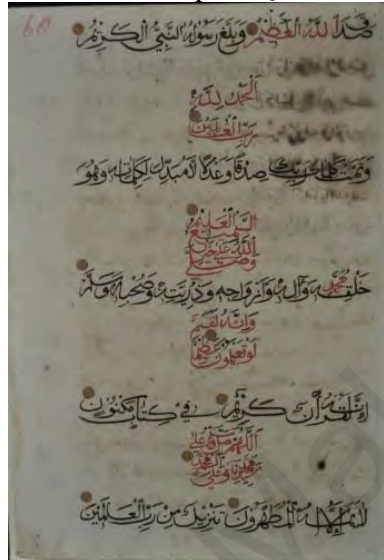 صدق الله العظيم وبلغ رسوله النبي الكريم
الحمد لله
رب العالمين
وتمت كلمات ربك صدقا وعدلا لا مبدل لكلماته وهو
السميع العليم
وصلى الله على خير
خلقه محمد وآله وأزواجه وذريته وصحبه وسلم
وإنه لقسم
لو تعلمون عظيم
إنه لقرآن كريم في كتاب مكنون
اللهم صل على
محمد وعلى
لا يمسه إلا المطهرون تنزيل من رب العالمين